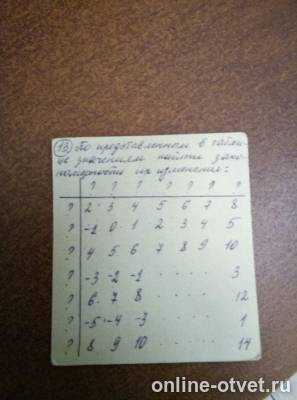 13) По представленном в табли-
це значениям найти зако-
номерность их изменения:
? ? ? ? ? ? ?
? 2 3 4 5 6 7 8
? -1 0 1 2 3 4 5
? 4 5 6 7 8 9 10
? -3 -2 -1 . . . . 3
? 6 7 8 . . . . 12
? -5 -4 -3 . . . . 1
? 8 9 10 . . . . 14
online-otvet.ru